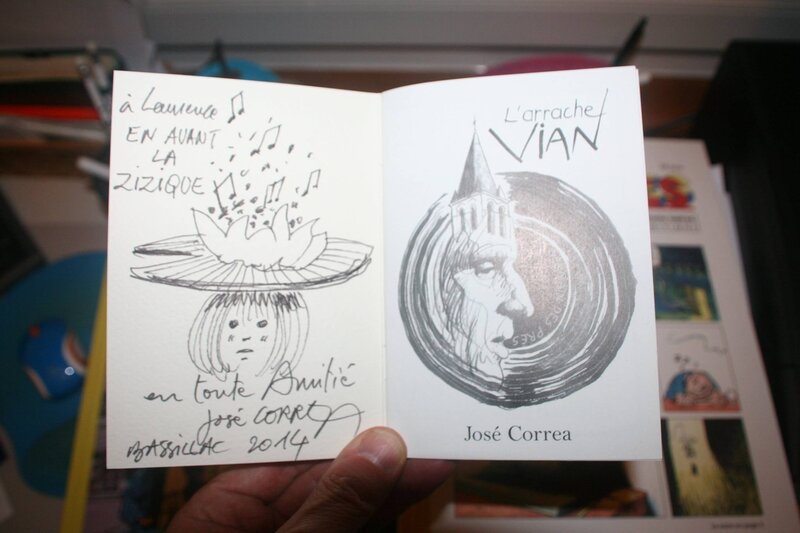 à Laurence
EN AVANT
LA
ZIZIQUE
en toute Amitié
José CORREA
BASSILLAC 2014
L'arrache
VIAN
José Correa